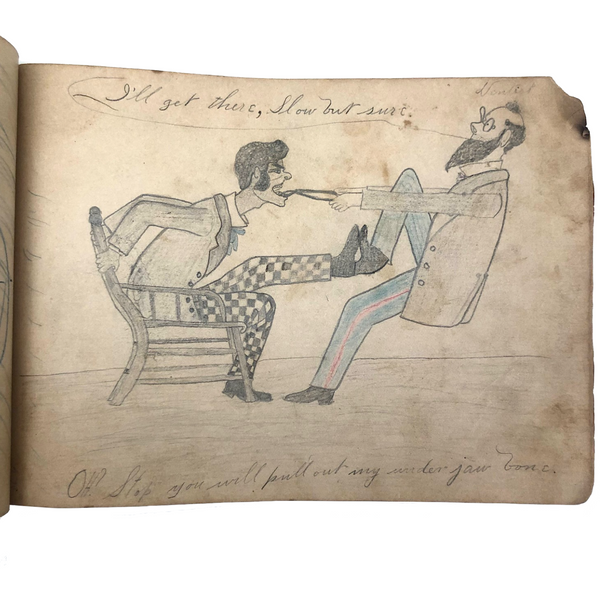 I'll get there, Slow but sure.
Dentist
Oh! Stop you will pull out my under jaw bone.